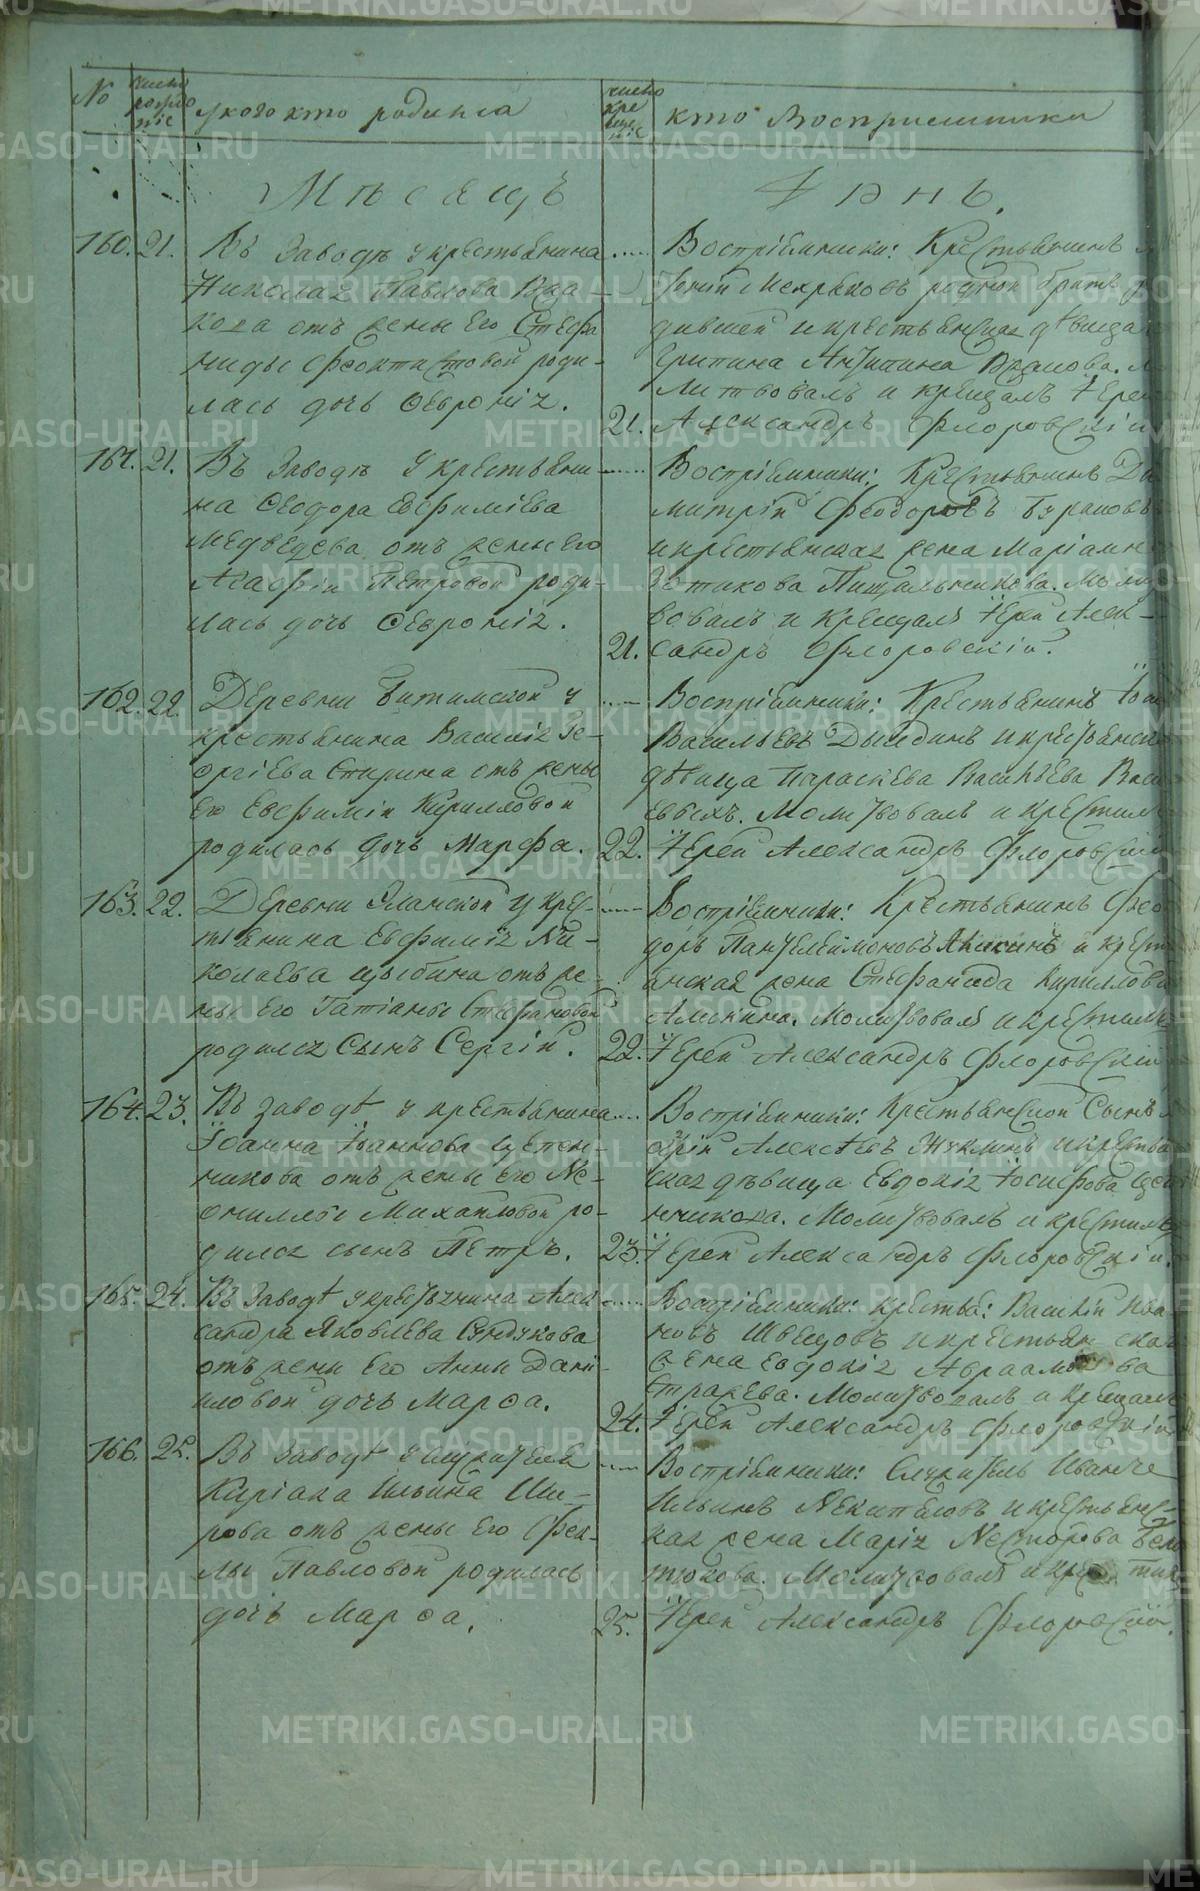 №
число рожде ніе
у кого кто родился
число кре щеніе
кто Воспріемники
Мѣсяцъ
Іюнь.
160. 21.
Въ Заводѣ у крестьянина
Николая Павлова
отъ жены Его Стефа
ниды Феоктистовой роди-
лась дочь Євронія.
Воспріемники: Крестьянинъ
родной братъ
и крестьянская дѣвица
Антипина
Молитвовалъ и крещалъ Іерей
21.
Александръ Флоровскій
161. 21.
Въ Заводѣ у крестьяни-
на Ѳеодора Евфиміева
Медведева отъ жены Его
Агафіи Петровой роди-
лась дочь Євронія.
Воспріемники: Крестьянинъ Ди
митрій Феодоровъ Бурановъ
и крестьянская жена Маріамна
Пищальникова. Молит
вовалъ и крещалъ Іерей Алек-
21.
сандръ Флоровскій.
162. 22.
Деревни Битимской у
крестьянина Василія Ге-
оргіева Старина отъ жены
Его Евфиміи Кирилловой
родилась дочь Марфа.
Воспріемники: Крестьянинъ
Васильевъ Дылдинъ и крестьянск
дѣвица Параскева Васильева
Молитвовалъ и крестилъ
22.
Іерей Александръ Флоровскій
163. 22.
Деревни Еланской у крес-
тьянина Евфимія Ни-
колаева Цыбина отъ же-
ны Его Татіаны Стефановой
родился Сынъ Сергій.
Воспріемники: Крестьянинъ Фео
доръ Пантелеимоновъ Аликинъ и крест
янская жена Стефанида Кириллова
Аликина. Молитвовалъ и крестилъ
22.
Іерей Александръ Флоровскій
164. 23.
Въ заводѣ у крестьянина
Іоанна Іоаннова Щепен-
никова отъ жены Его Не-
ониллы Михайловой ро-
дился сынъ Петръ.
Воспріемники: Крестьянской Сынъ
Алексѣевъ Жуклинъ и крестьян
ская дѣвица Евдокія Іосифова Щепе
нникова. Молитвовалъ и крестилъ
23.
Іерей Александръ Флоровскій.
165. 24.
Въ Заводѣ у крестьянина Алек
сандра Яковлева Сундукова
отъ жены Его Анны Дани
иловой дочь Марѳа.
Воспріемники: крестья: Василій Ива
новъ Швецовъ и крестьянская
жена Евдокія Авраамова
Стражева. Молитвовалъ и крещалъ
24.
Іерей Александръ Флоровскій
166. 25.
Въ Заводѣ у Служителя
Киріака Ильина Ши-
рова отъ жены Его Фек-
лы Павловой родилась
дочь Марѳа.
Воспріемники: Служитель
Ильинъ Некипеловъ и крестьянс-
кая жена Марія Несторова
Молитвовалъ и крестилъ
25.
Іерей Александръ Флоровскій.
METRIKI.GASO-URAL.RU